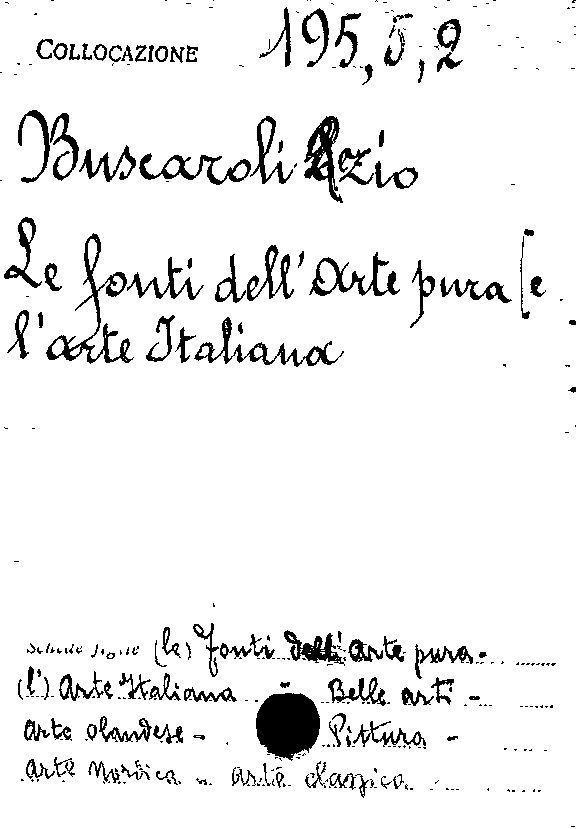 COLLOCAZIONE 195,5,2
Buscaroli Rezio
Le fonti dell'arte pura [e
l'arte Italiana
(le) Fonti dell'Arte pura -
(l') Arte Italiana - Belle arti -
Arte olandese - Pittura -
Arte Nordica - arte classica